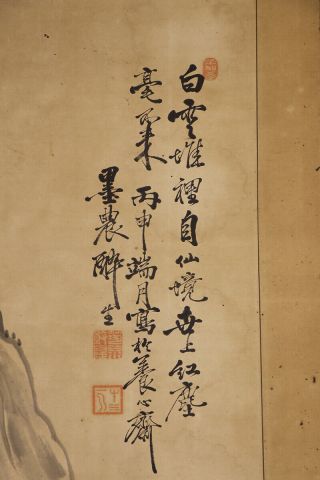 白雲堆裡自仙境世上紅塵
毫不来 丙申端月寫於養心齋
墨農醉生